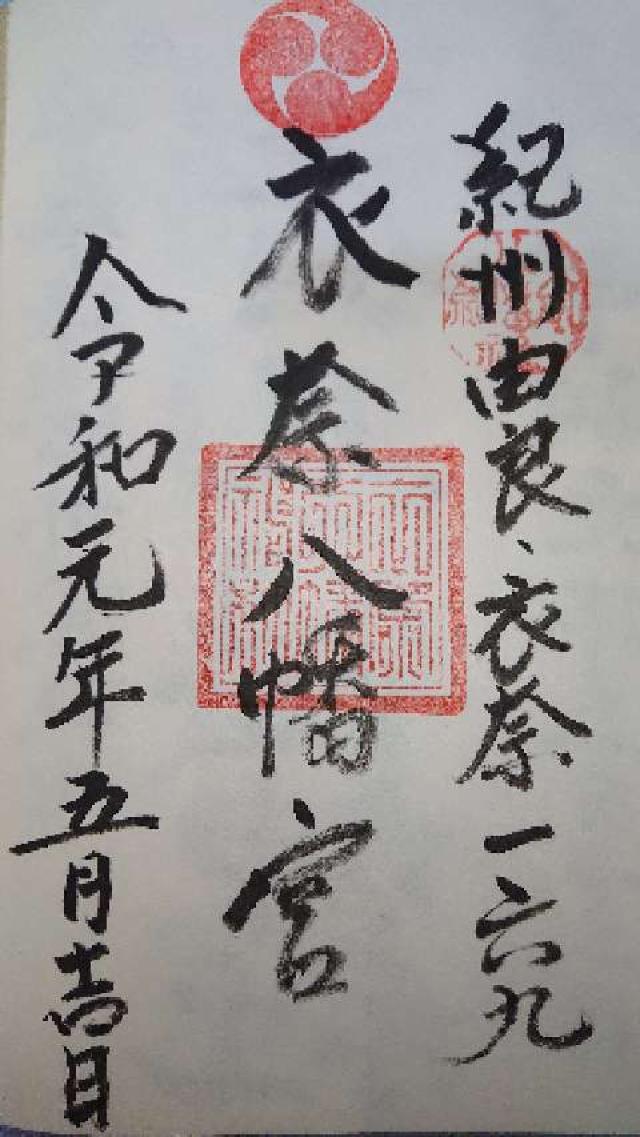 紀州由良、衣奈一六九
衣奈八幡宮
令和元年五月十四日